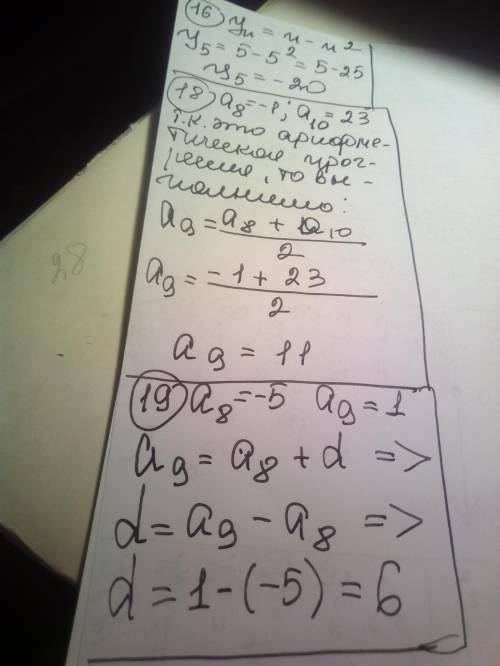 16 yn = n - n²
y5 = 5 - 5² = 5 - 25
y5 = -20
18 a8 = -1; a10 = 23
т.к. это арифме-
тическая прог-
рессия, то вы-
полнимо:
a9 = (a8 + a10)/2
a9 = (-1 + 23)/2
a9 = 11
28
19 a8 = -5 a9 = 1
a9 = a8 + d =>
d = a9 - a8 =>
d = 1 - (-5) = 6